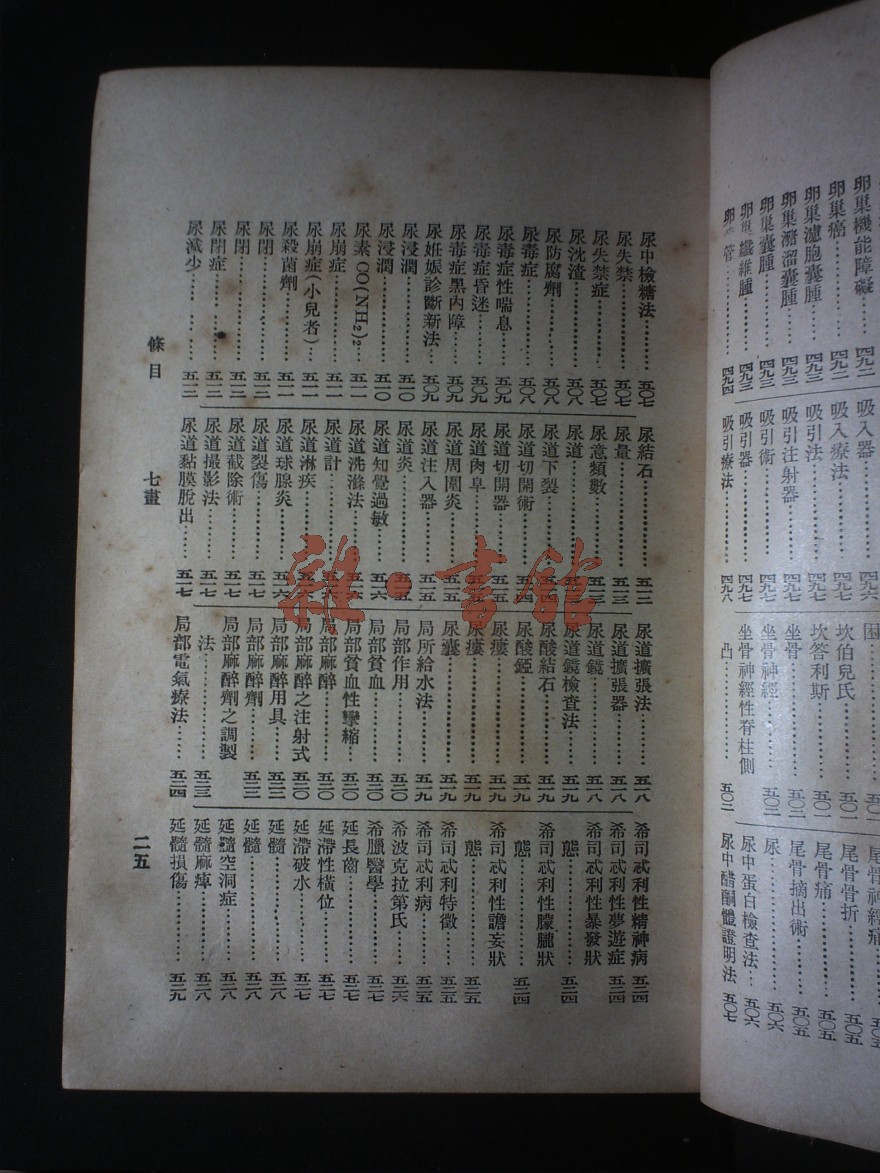 卵巢機能障礙 四九二
卵巢癌 四九二
卵巢濾胞囊腫 四九三
卵巢瀦溜囊腫 四九三
卵巢囊腫 四九三
卵巢纖維腫 四九三
管 四九四
吸入器 四九六
吸入療法 四九七
吸引法 四九七
吸引注射器 四九七
吸引術 四九七
吸引器 四九七
吸引療法 四九八
坎伯兒氏 五〇
坎答利斯 五〇一
坐骨 五〇二
坐骨神經 五〇二
坐骨神經性脊柱側
凸 五〇二
尾骨神經痛 五〇五
尾骨骨折 五〇五
尾骨痛 五〇五
尾骨摘出術 五〇五
尿 五〇六
尿中蛋白檢查法 五〇六
尿中醋酮體證明法 五〇七
尿中檢糖法 五〇七
尿失禁 五〇七
尿失禁症 五〇七
尿沈渣 五〇八
尿防腐劑 五〇八
尿毒症 五〇八
尿毒症性喘息 五〇九
尿毒症昏迷 五〇九
尿毒症黑內障 五〇九
尿妊娠診斷新法 五〇九
尿浸潤 五一〇
尿浸潤 五一〇
尿素CO(NH₂)₂ 五一一
尿崩症 五一一
尿崩症(小兒者) 五一一
尿殺菌劑 五一一
尿閉 五一二
尿閉 五一二
尿閉症 五一二
尿減少 五一二
尿結石 五一三
尿量 五一三
尿意頻數 五一三
尿道 五一四
尿道下裂 五一四
尿道切開術 五一四
尿道切開器 五一五
尿道肉阜 五一五
尿道周圍炎 五一五
尿道注入器 五一五
尿道炎 五一五
尿道知覺過敏 五一六
尿道洗滌法 五一六
尿道計 五一六
尿道淋疾 五一六
尿道球腺炎 五一六
尿道裂傷 五一七
尿道截除術 五一七
尿道撮影法 五一七
尿道黏膜脫出 五一七
尿道擴張法 五一八
尿道擴張器 五一八
尿道鏡 五一八
尿道鏡檢查法 五一九
尿酸結石 五一九
尿酸銋 五一九
尿瘻 五一九
尿瘻 五一九
尿囊 五一九
局所給水法 五一九
局部作用 五二〇
局部貧血 五二〇
局部貧血性攣縮 五二〇
局部麻醉 五二〇
局部麻醉之注射式 五二〇
局部麻醉用具 五二三
局部麻醉劑 五二三
局部麻醉劑之調製
法 五二三
局部電氣療法 五二四
希司忒利性精神病 五二四
希司忒利性夢遊症 五二四
希司忒利性暴發狀
態 五二四
希司忒利性朦朧狀
態 五二四
希司忒利性譫妄狀
態 五二五
希司忒利特徵 五二五
希司忒利病 五二五
希波克拉第氏 五二六
希臘醫學 五二七
延長齒 五二七
延滯性橫位 五二七
延滯破水 五二七
延髓 五二八
延髓 五二八
延髓空洞症 五二八
延髓麻痺 五二八
延髓損傷 五二九
條目 七畫
二五
雜·書館